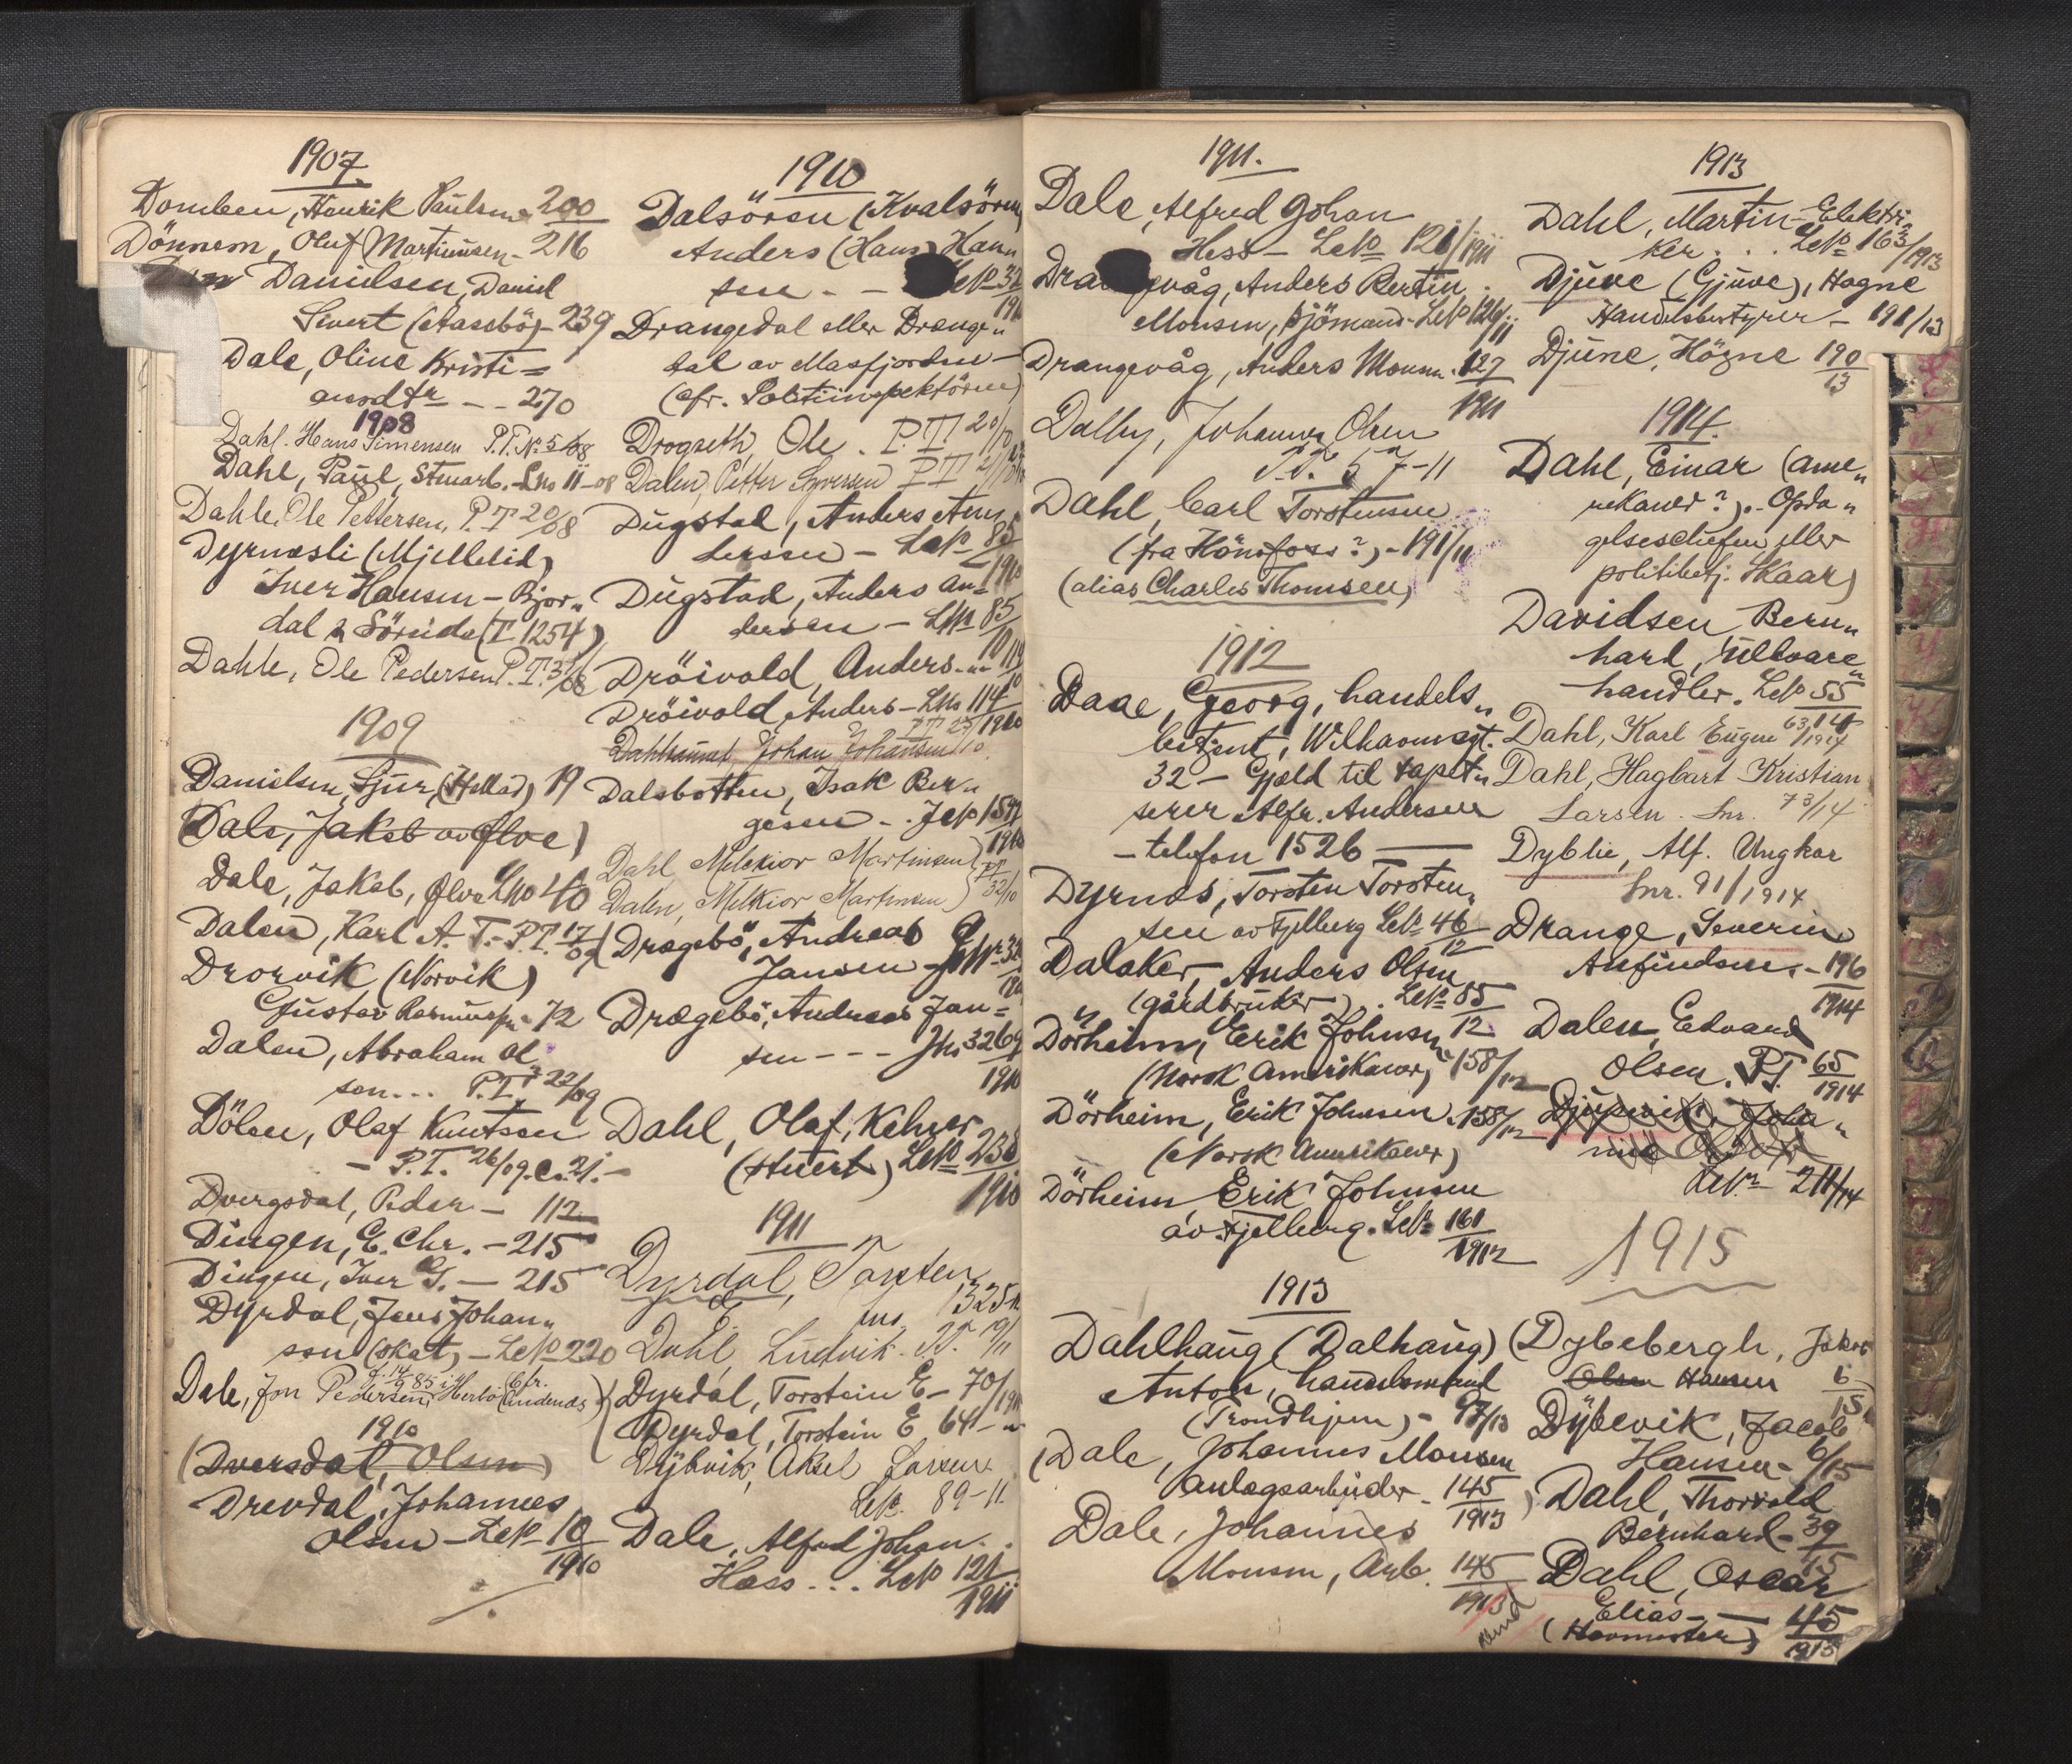 1907
Domben, Henrik Paulsen 200
Dönnem, Oluf Martinusen - 216
Danielsen, Daniel
Sivert (Aasebö) - 239
Dale, Oline Kristi=
ansdtr - - 270
1908
Dahl. Hans Simensen P.T. N. 5/08
Dahl, Paul, Stuarb. - Lno 11-08
Dahle, Ole Pettersen, P.T 20/08
Dyrnesli (Mjellelid)
Iver Hansen - Bjor„
dal & Söreide (T 1254)
Dahle, Ole Pedersen P.T. 37/08
1909
Danielsen, Sjur, (Hellad) 19
(Dale, Jakob av Ølve)
Dale, Jakob, Ølve Lno 40
Dalen, Karl A. T. - P.T. 17/09
Drorvik (Norvik)
Gustav Rasmus 72
Dalen, Abraham Ol
sen... P.T. 22/09
Dölen, Olaf Knutsen
- P.T. 26/09.
Dvergsdal, Peder - 112
Dingen, E. Chr. - 215
Dingen, Iver G. - 215
Dyrdal, Jens Johan„
sen (skat) - LNo 220
Dale, Jon Pedersen, f. 14/9 85 i Herlö (Lindenæs)
1910
(Dversdal, Olsen)
Drevdal, Johannes
Olsen - LNo 10
1910
1910
Dalsören (Kvalsören)
Anders (Hans) Han„
sen - - LNo 32
1910
Drangedal eller Drange„
dal av Masfjorden -
(cfr. Politiinspektören)
Drogseth, Ole. P.T. 20/10
Dalen, Petter Syversen P.T 21/10
Dugstad, Anders An„
dersen - LNo 85
1910
Dugstad, Anders An=
dersen - LNo 85
10
Dröivold, Anders - „ 114/10
Dröivold, Anders - LNo 114
1910
Johan Johansen
Dalsbotten, Isak Ber„
gesen - . JNo 1544
1910
Dahl Melkior Martinsen)
Dalen, Melkior Martinsen) P.T. 32/10
Drægebö, Andreas
Jansen - JNo
Drægebö, Andreas Jan=
sen - - - JNo 3269
1910
Dahl, Olaf, Kelner
(stuert) LNo 238
1910
1911
Dyrdal, Torsten
E. Jns. 1325-11
Dahl, Ludvik. P.T. 19/11
Dyrdal, Torstein E - 70/1911
Dyrdal, Torstein E 641 - „
Dybvik, Aksel Larsen
LNo. 89-11.
Dale, Alfred Johan
Hess... LNo 121
1911
1911.
Dale, Alfred Johan
Hess - LNo 121/1911
Drangevåg, Anders Bertin
Monsen, Sjömand - LNo 126/11
Drangevåg, Anders Monsen. 127
1911
Dalby, Johannes Olsen
P.T. 57-11
Dahl, Carl Torstensen
(fra Hönefoss?) - 191/11
(alias Charles Thomsen)
1912
Daae, Georg, handels„
betjent, Wilhavnsgt.
32 - Gjæld til tapet„
serer Alfr. Andersen
- telefon 1526 -
Dyrnes, Torsten Torsten„
sen av Fjelberg LNo 46
12
Dalaker, Anders Olsen
(gårdbruker). LNo 85
12
Dörheim, Erik Johnsen
(Norsk Amerikaner) 158/12
Dörheim, Erik Johnsen - 158/12
(Norsk Amerikaner)
Dörheim Erik Johnsen
av Fjelberg. LNo 161
1912
1913
Dahlhaug (Dalhaug)
Anton, handelsmand
(Trondhjem) - 97/13
(Dale, Johannes Monsen
Anlægsarbeider - 145
1913)
Dale, Johannes
Monsen, Arb. 145
1913
1913
Dahl, Martin - Elektri„
ker... LNo 163/1913
Djuve (Gjuve), Hogne
Handelsbestyrer - 191/13
Djuve, Högne 190
13
1914.
Dahl, Einar (ame„
rikaner?). - Opda„
gelseschefen eller
politibetj. Skaar)
Davidsen Bern„
hard, Uldvare„
handler. LNo 55
1914
Dahl, Karl Eugen 63/1914
Dahl, Hagbart Kristian
Larsen. Lnr. 73/14
Dyblie, Alf. Ungkar
Lnr. 91/1914
Drange, Severin
Anfindsen - 196
1914
Dalen, Edvard
Olsen. P.T. 65
1914
Djupevik, Joha„
LNo - 211/14
1915
(Dybebergh, Jakob
Olsen Hansen 6
15)
Dybevik, Jacob
Hansen - 6/15
Dahl, Thorvald
Bernhard - 39
15
Dahl, Oscar
Elias - - 45
(Havnmester) 1915